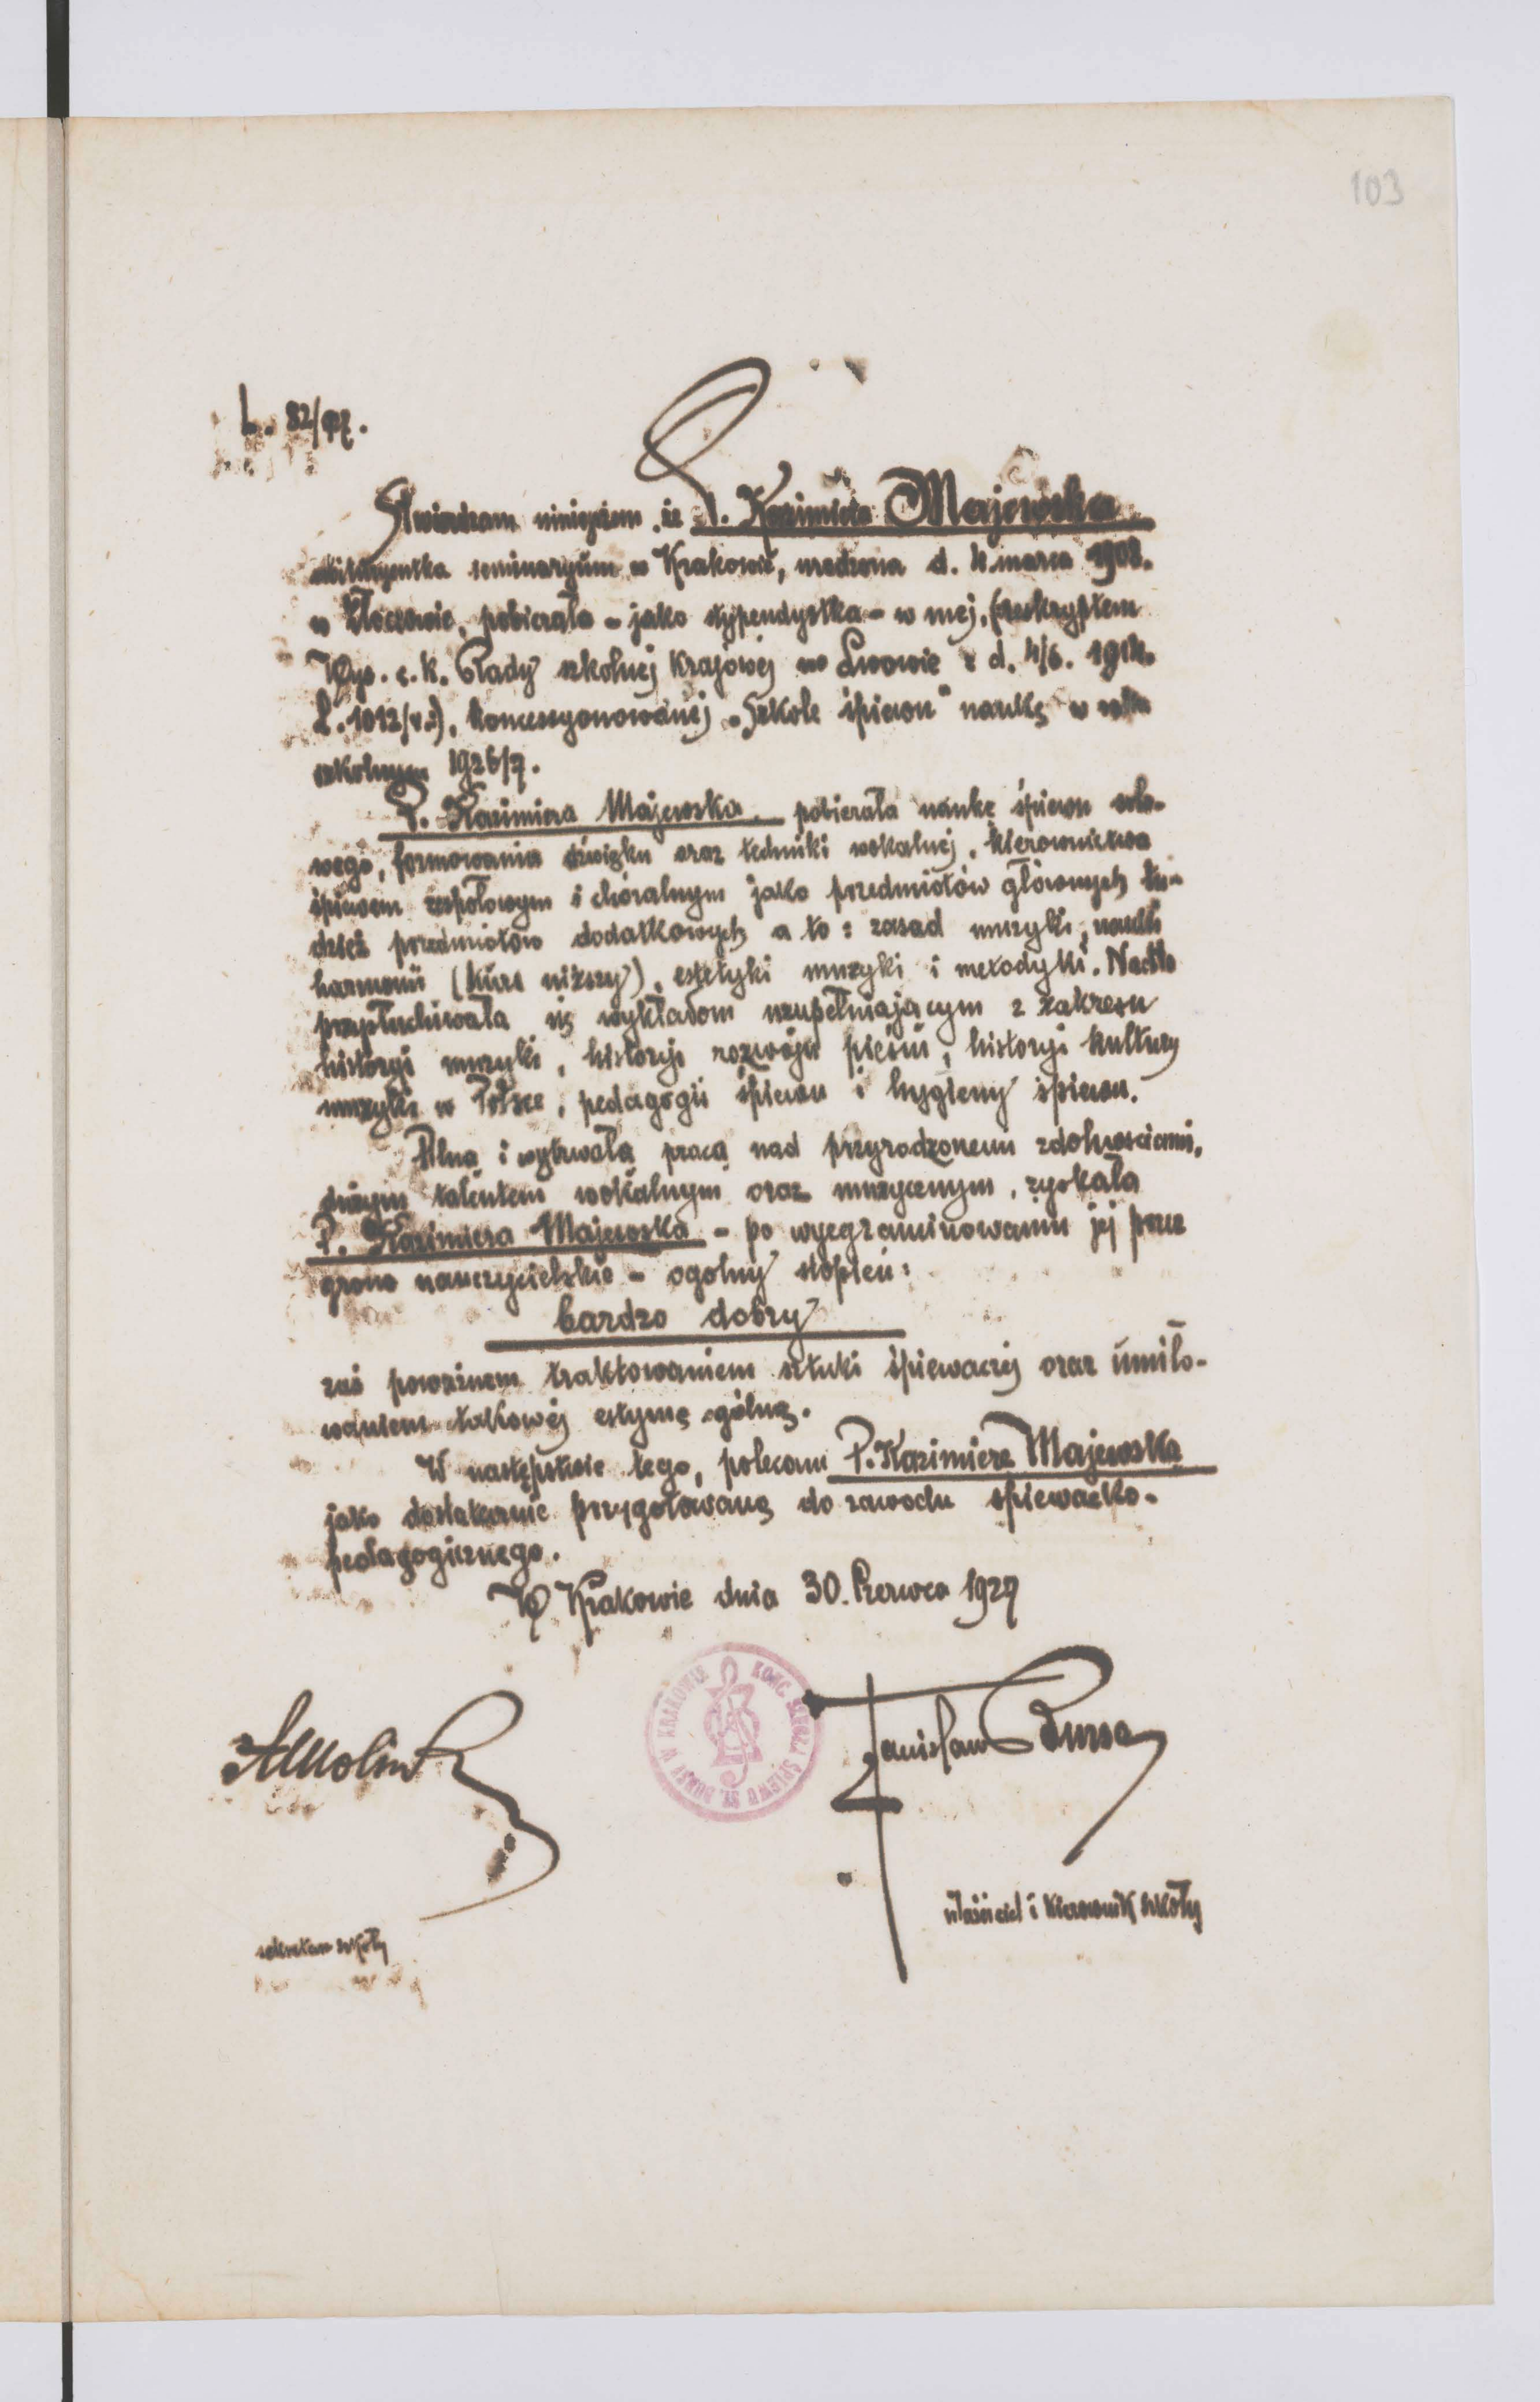 103
L. 82/
Stwierdzam niniejszem, że P. Kazimiera Majewska
abituryentka seminaryum w Krakowie, urodzona d. 4 marca 1908.
w Złoczowie, pobierała - jako stypendystka - w mej, (reskryptem
Wys. c. k. Rady szkolnej krajowej we Lwowie z d. 4/6. 1912.
L. 1012/ koncesyonowanej „Szkole śpiewu" naukę w roku
szkolnym 1926/7.
P. Kazimiera Majewska pobierała naukę śpiewu solo-
wego, formowania dźwięku oraz techniki wokalnej, kierownictwa
śpiewem zespołowym i chóralnym jako przedmiotów głównych tu-
dzież przedmiotów dodatkowych a to: zasad muzyki, nauki
harmonii (kurs niższy), estetyki muzyki i metodyki. Nadto
przysłuchiwała się wykładom uzupełniającym z zakresu
historyi muzyki, historyi rozwoju pieśni, historyi kultury
muzyki w Polsce, pedagogii śpiewu i hygieny śpiewu.
Pilną i wytrwałą pracą nad przyrodzonemi zdolnościami,
dużym talentem wokalnym oraz muzycznym, zyskała
P. Kazimiera Majewska - po wyegzaminowaniu jej przez
grono nauczycielskie - ogólny stopień:
bardzo dobry
zaś poważnem traktowaniem sztuki śpiewaczej oraz umiło-
waniem takowej estymę ogólną.
W następstwie tego, polecam P. Kazimierę Majewską
jako dostatecznie przygotowaną do zawodu śpiewacko-
pedagogicznego.
W Krakowie dnia 30. Czerwca 1927
KONC. SZKOŁA ŚPIEWU ST. BURSY W KRAKOWIE
Stanisław Bursa
właściciel i kierownik szkoły
sekretarz szkoły